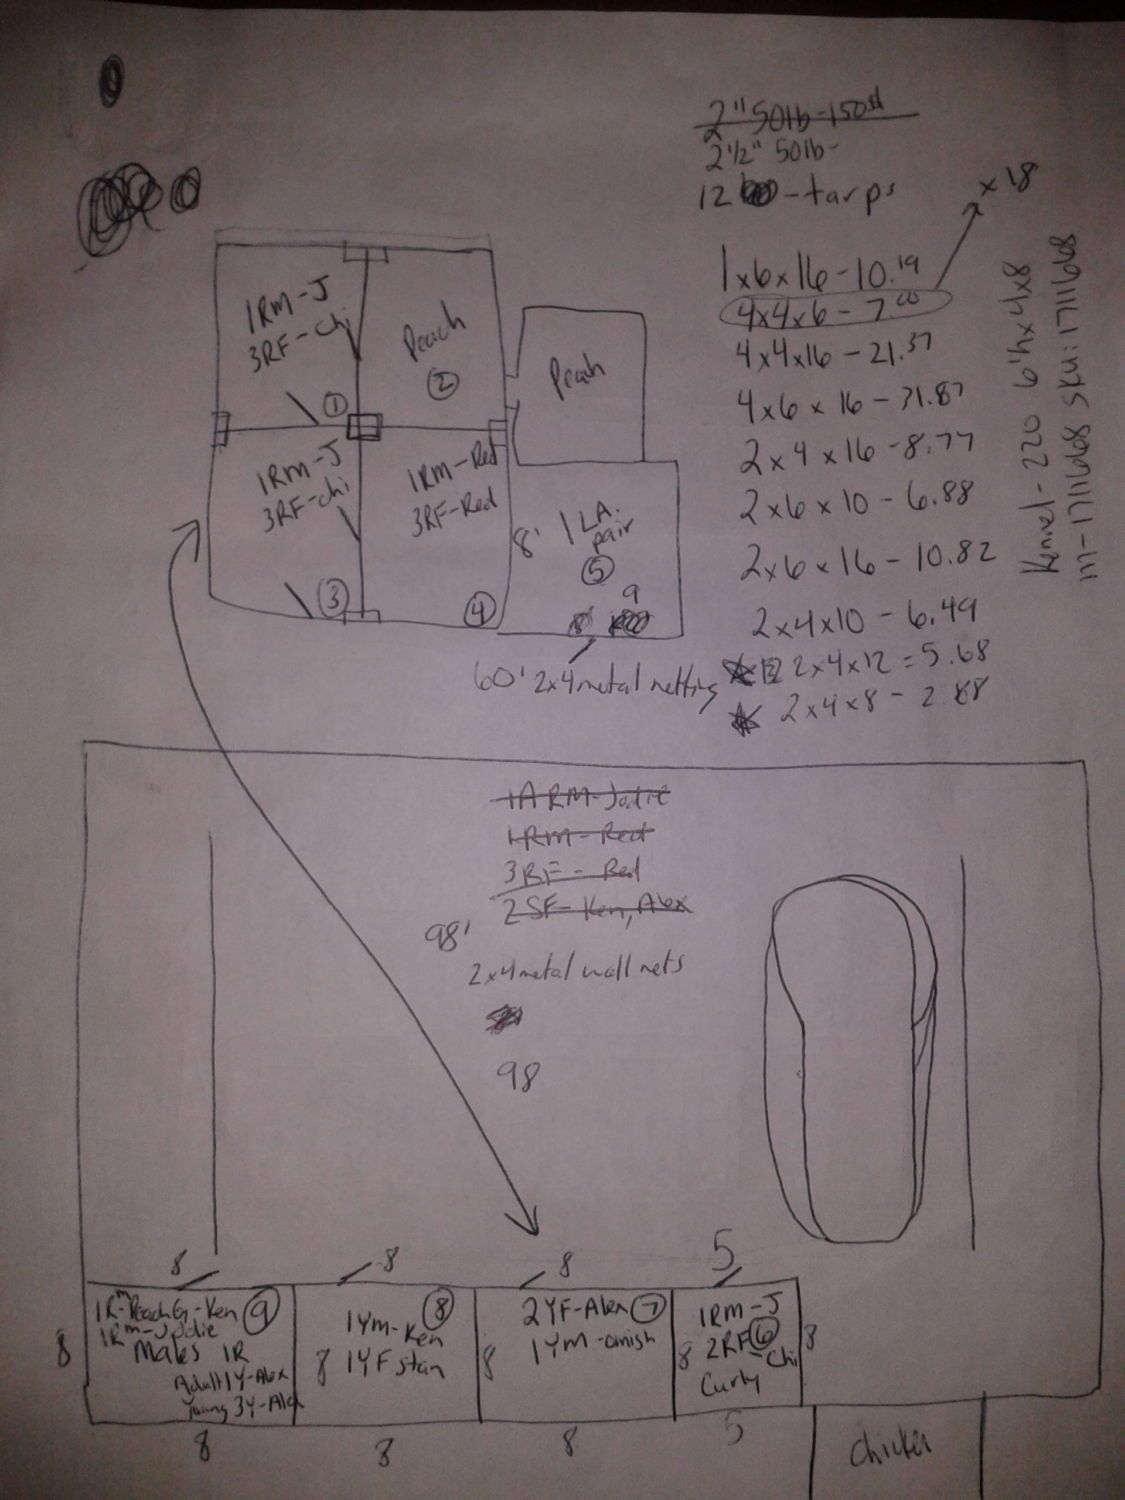 2" 50lb-150st
2 1/2" 50lb-
12 -tarps
x 18
1x6x16-10.19
4x4x6-7.00
4x4x16-21.37
4x6x16-31.87
2x4x16-8.77
2x6x10-6.88
2x6x16-10.82
2x4x10-6.49
12 2x4x12=5.68
2x4x8-2.88
Kennel-220 6'hx4x8
m-1711668 SKU:1711668
1RM-J
3RF-chi
①
Peach
②
Peach
1RM-J
3RF-chi
③
1RM-Red
3RF-Red
④
8'
1 LA.
pair
⑤
9
60' 2x4 metal netting
1A RM-Jodie
1RM-Red
3RF-Red
2SF-Ken, Alex
98'
2x4 metal wall nets
98
8
8
8
5
1Rm-Peach G-Ken ⑨
1Rm-Jodie
Males 1R
Adult 1Y-Alex
Young 3Y-Alex
8
1Ym-Ken ⑧
1YF stan
8
2YF-Alex ⑦
1YM-amish
8
1RM-J
2RF-Chi ⑥
Curly
8
8
8
8
8
5
Chicken